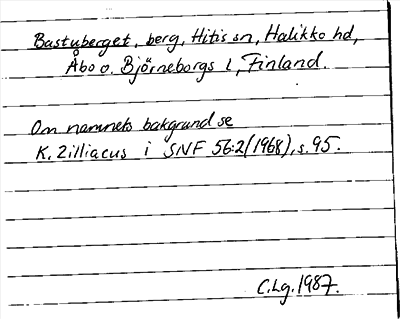 Bastuberget, berg, Hitis sn, Halikko hd,
Åbo o. Björneborgs l, Finland.
Om namnets bakgrund se
K. Zilliacus i SNF 56:2(1968), s. 95.
C.Lg. 1987.